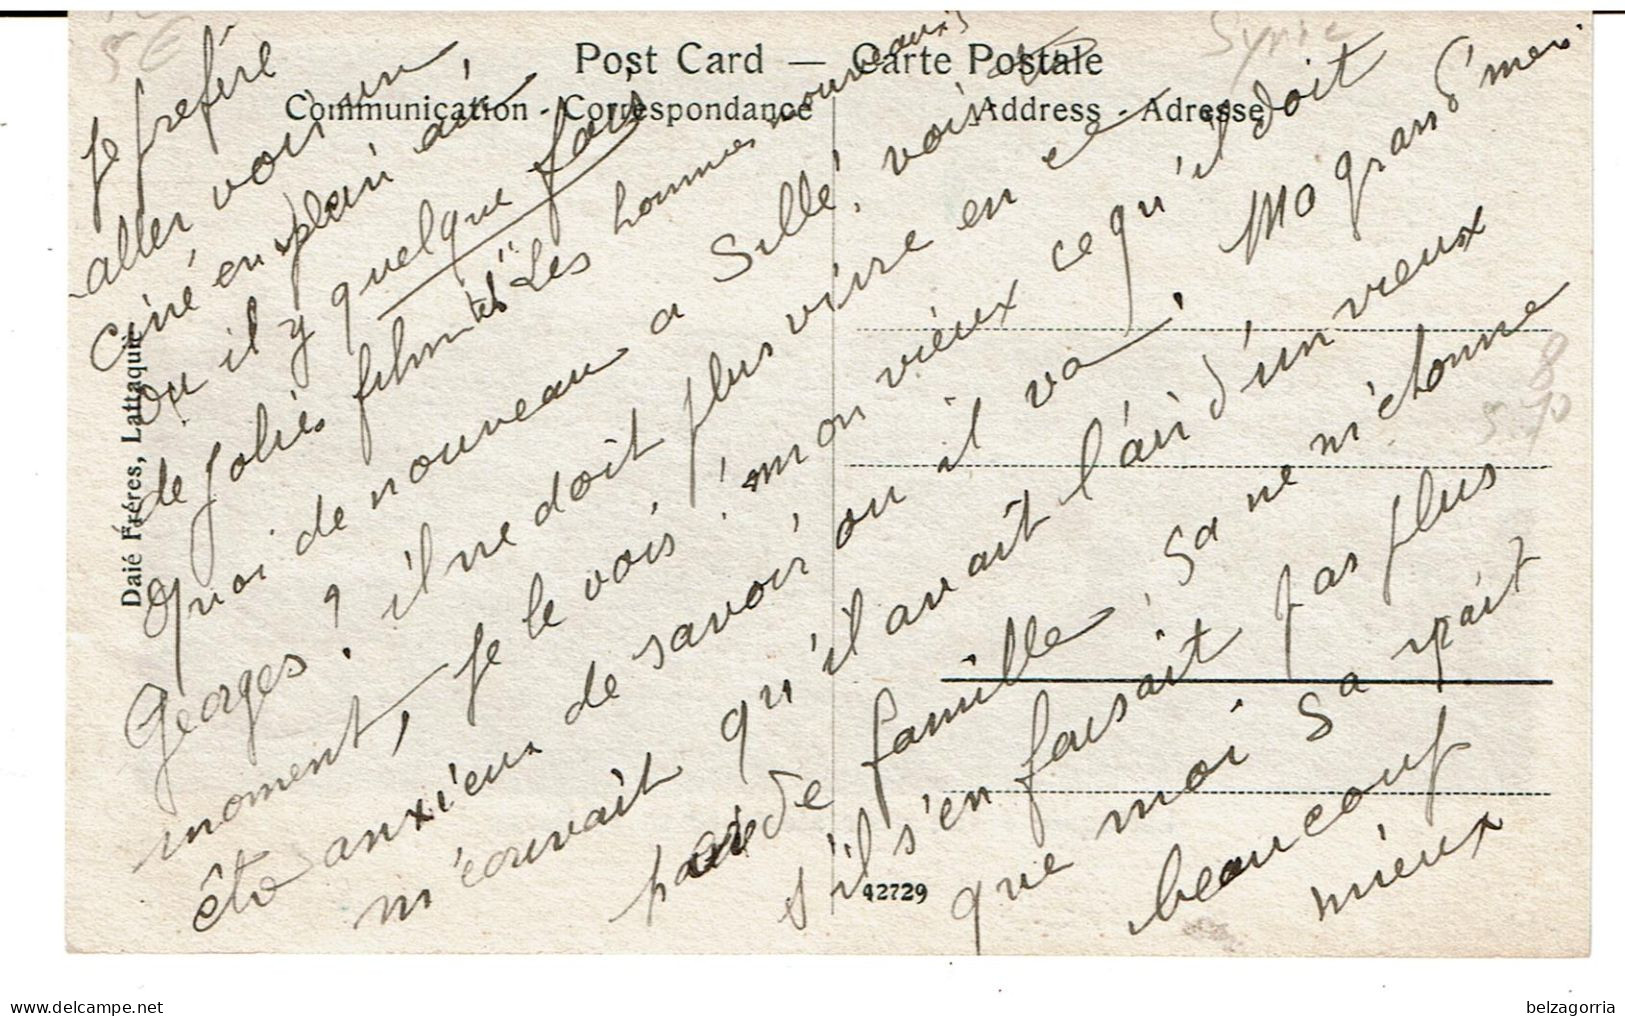 Post Card — Carte Postale
Communication - Correspondance
Address - Adresse
Syrie
5€
Je préfère
aller voir un
ciné en plein air,
ou il y quelque fois
de jolies films tel "Les hommes nouveaux"
Quoi de nouveau a Sillé, vois tu
Georges? il ne doit plus vivre en ce
moment, je le vois! mon vieux ce qu'il doit
être anxieux de savoir ou il va! Ma grand'mère
m'écrivait qu'il avait l'air d'un vieux
père de famille, sa ne m'étonne
s'il s'en faisait pas plus
que moi sa irait
beaucoup
mieux
Daié Fréres, Lattaquié
42729
belzagorria
www.delcampe.net